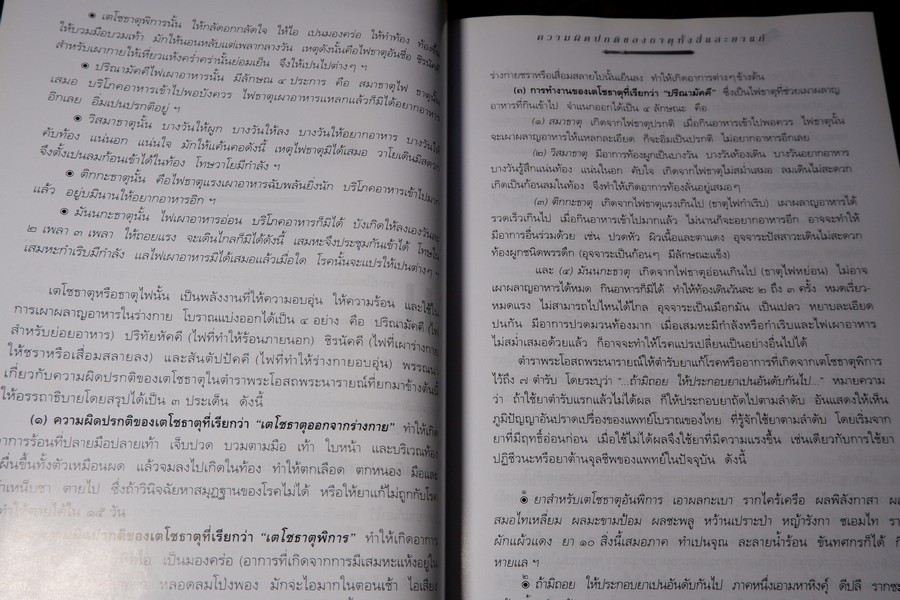 ๏ เตโชธาตุพิการนั้น ให้กลัดอกกลัดใจ ให้ไอ เปนมองคร่อ ให้ทำท้อง ท้องขึ้น
ให้บวมมือบวมเท้า มักให้นอนหลับแต่เพลากลางวัน เหตุดังนั้นคือไฟธาตุอันชื่อ ชิรนัคคี
สำหรับเผากายให้เหี่ยวแห้งคร่ำคร่านั้นย่อมเย็น จึงให้เปนไปต่างๆ ฯ
๏ ปริณามัคคีไฟเผาอาหารนั้น มีลักษณ ๔ ประการ คือ สมาธาตุไฟ ธาตุนั้น
เสมอ บริโภคอาหารเข้าไปพอบังควร ไฟธาตุเผาอาหารแหลกแล้วก็มิได้อยากอาหาร
อีกเลย อิ่มเปนปรกติอยู่ ฯ
๏ วิสมาธาตุนั้น บางวันให้ผูก บางวันให้ลง บางวันให้อยากอาหาร บางวันให้
คับท้อง แน่นอก แน่นใจ มักให้แค้นคอดังนี้ เหตุไฟธาตุมิได้เสมอ วาโยเดินมิสดวก
จึงตั้งเปนลมก้อนเข้าได้ในท้อง โทษวาโยมีกำลัง ฯ
๏ ติกกะธาตุนั้น คือไฟธาตุแรงเผาอาหารฉับพลันยิ่งนัก บริโภคอาหารเข้าไปมาก
แล้ว อยู่บมินานให้อยากอาหารอีก ฯ
๏ มันนกะธาตุนั้น ไฟเผาอาหารอ่อน บริโภคอาหารก็มิได้ บังเกิดให้ลงเองวันละ
๒ เพลา ๓ เพลา ให้ถอยแรง จะเดินไกลก็มิได้ดังนี้ เสมหะจึงประชุมกันเข้าได้ โทษใน
เสมหะกำเริบมีกำลัง แลไฟเผาอาหารมิได้เสมอแล้วเมื่อใด โรคนั้นจะแปรให้เปนต่างๆ ฯ
เตโชธาตุหรือธาตุไฟนั้น เป็นพลังงานที่ให้ความอบอุ่น ให้ความร้อน และใช้ใน
การเผาผลาญอาหารในร่างกาย โบราณแบ่งออกได้เป็น ๔ อย่าง คือ ปริณามัคคี (ไฟ
สำหรับย่อยอาหาร) ปริทัยหัคคี (ไฟที่ทำให้ร้อนภายนอก) ชิรนัคคี (ไฟที่เผาร่างกาย
ให้ชราหรือเสื่อมสลายลง) และสันตัปปัคคี (ไฟที่ทำให้ร่างกายอบอุ่น) พรรณนา
เกี่ยวกับความผิดปกติของเตโชธาตุในตำราพระโอสถพระนารายณ์ที่ยกมาข้างต้นนี้
ให้อรรถาธิบายโดยสรุปได้เป็น ๓ ประเด็น ดังนี้
(๑) ความผิดปกติของเตโชธาตุที่เรียกว่า “เตโชธาตุออกจากร่างกาย” ทำให้เกิด
อาการร้อนที่ปลายมือปลายเท้า เจ็บปวด บวมตามมือ เท้า ใบหน้า และบริเวณท้อง
ผื่นขึ้นทั้งตัวเหมือนผด แล้วจมลงไปเกิดในท้อง ทำให้ตกเลือด ตกหนอง มือและ
เท้าเหน็บชา ตายไป ซึ่งถ้าวินิจฉัยหาสมุฏฐานของโรคไม่ได้ หรือให้ยาแก้ไม่ถูกกับโรค
ทำให้ตายได้ใน ๑๕ วัน
ความผิดปกติของเตโชธาตุที่เรียกว่า “เตโชธาตุพิการ” ทำให้เกิดอาการ
ไอ เป็นมองคร่อ (อาการที่เกิดจากการมีเสมหะแห้งอยู่ใน
หลอดลมโป่งพอง มักจะไอมากในตอนเช้า ไอเสียง
ความผิดปกติของธาตุทั้งสี่และยาแก้
ร่างกายชราหรือเสื่อมสลายไปนั้นเย็นลง ทำให้เกิดอาการต่างๆข้างต้น
(๓) การทำงานของเตโชธาตุที่เรียกว่า “ปริณามัคคี” ซึ่งเป็นไฟธาตุที่ช่วยเผาผลาญ
อาหารที่กินเข้าไป จำแนกออกได้เป็น ๔ ลักษณะ คือ
(๑) สมาธาตุ เกิดจากไฟธาตุปรกติ เมื่อกินอาหารเข้าไปพอควร ไฟธาตุนั้น
จะเผาผลาญอาหารให้แหลกละเอียด ก็จะอิ่มเป็นปรกติ ไม่อยากอาหารอีกเลย
(๒) วิสมาธาตุ มีอาการท้องผูกเป็นบางวัน บางวันท้องเดิน บางวันอยากอาหาร
บางวันรู้สึกแน่นท้อง แน่นในอก คับใจ เกิดจากไฟธาตุไม่สม่ำเสมอ ลมเดินไม่สะดวก
เกิดเป็นก้อนลมในท้อง จึงทำให้เกิดอาการท้องลั่นอยู่เสมอๆ
(๓) ติกกะธาตุ เกิดจากไฟธาตุแรงเกินไป (ธาตุไฟกำเริบ) เผาผลาญอาหารได้
รวดเร็วเกินไป เมื่อกินอาหารเข้าไปมากแล้ว ไม่นานก็จะอยากอาหารอีก อาจจะทำให้
มีอาการอื่นร่วมด้วย เช่น ปวดหัว ผิวเนื้อและตาแดง อุจจาระปัสสาวะเดินไม่สะดวก
ท้องผูกชนิดพรรดึก (อุจจาระเป็นก้อนๆ มีลักษณะแข็ง)
และ (๔) มันนกะธาตุ เกิดจากไฟธาตุอ่อนเกินไป (ธาตุไฟหย่อน) ไม่อาจ
เผาผลาญอาหารได้หมด กินอาหารก็มิได้ ทำให้ท้องเดินวันละ ๒ ถึง ๓ ครั้ง หมดเรี่ยว-
หมดแรง ไม่สามารถไปไหนได้ไกล อุจจาระเป็นเมือกมัน เป็นเปลว หยาบละเอียด
ปนกัน มีอาการปวดมวนท้องมาก เมื่อเสมหะมีกำลังหรือกำเริบและไฟเผาอาหาร
ไม่สม่ำเสมอด้วยแล้ว ก็อาจจะทำให้โรคแปรเปลี่ยนเป็นอย่างอื่นไปได้
ตำราพระโอสถพระนารายณ์ให้ตำรับยาแก้โรคหรืออาการที่เกิดจากเตโชธาตุพิการ
ไว้ถึง ๗ ตำรับ โดยระบุว่า “...ถ้ามิถอย ให้ประกอบยาเปนอันดับกันไป...” หมายความ
ว่า ถ้าใช้ยาตำรับแรกแล้วไม่ได้ผล ก็ให้ประกอบยาถัดไปตามลำดับ อันแสดงให้เห็น
ภูมิปัญญาอันปราดเปรื่องของแพทย์โบราณของไทย ที่รู้จักใช้ยาตามลำดับ โดยเริ่มจาก
ยาที่มีฤทธิ์อ่อนก่อน เมื่อใช้ไม่ได้ผลจึงใช้ยาที่มีความแรงขึ้น เช่นเดียวกับการใช้ยา
ปฏิชีวนะหรือยาต้านจุลชีพของแพทย์ในปัจจุบัน ดังนี้
๏ ยาสำหรับเตโชธาตุอันพิการ เอาผลกะเบา รากไคร้เครือ ผลพิลังกาสา
สมอไทเหลี่ยม ผลมะขามป้อม ผลชะพลู หว้านเปราะป่า หญ้ารังกา ชเอมไท
ผักแผ้วแดง ยา ๑๐ สิ่งนี้เสมอภาค ทำเปนจุณ ละลายน้ำร้อน ขันทศกรก็ได้
หายแล ฯ
๏ ถ้ามิถอย ให้ประกอบยาเปนอันดับกันไป ภาคหนึ่งเอามหาหิงคุ์ ดีปลี